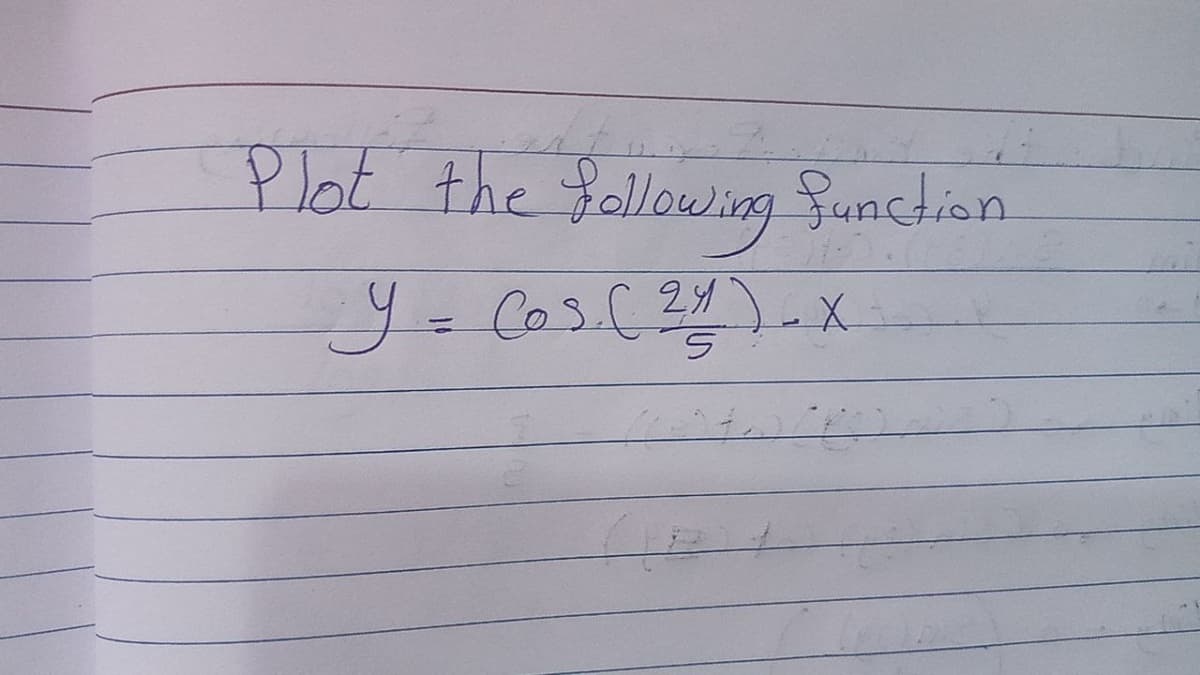 Plot the following function
y = Cos.( 2y/5 ) - x